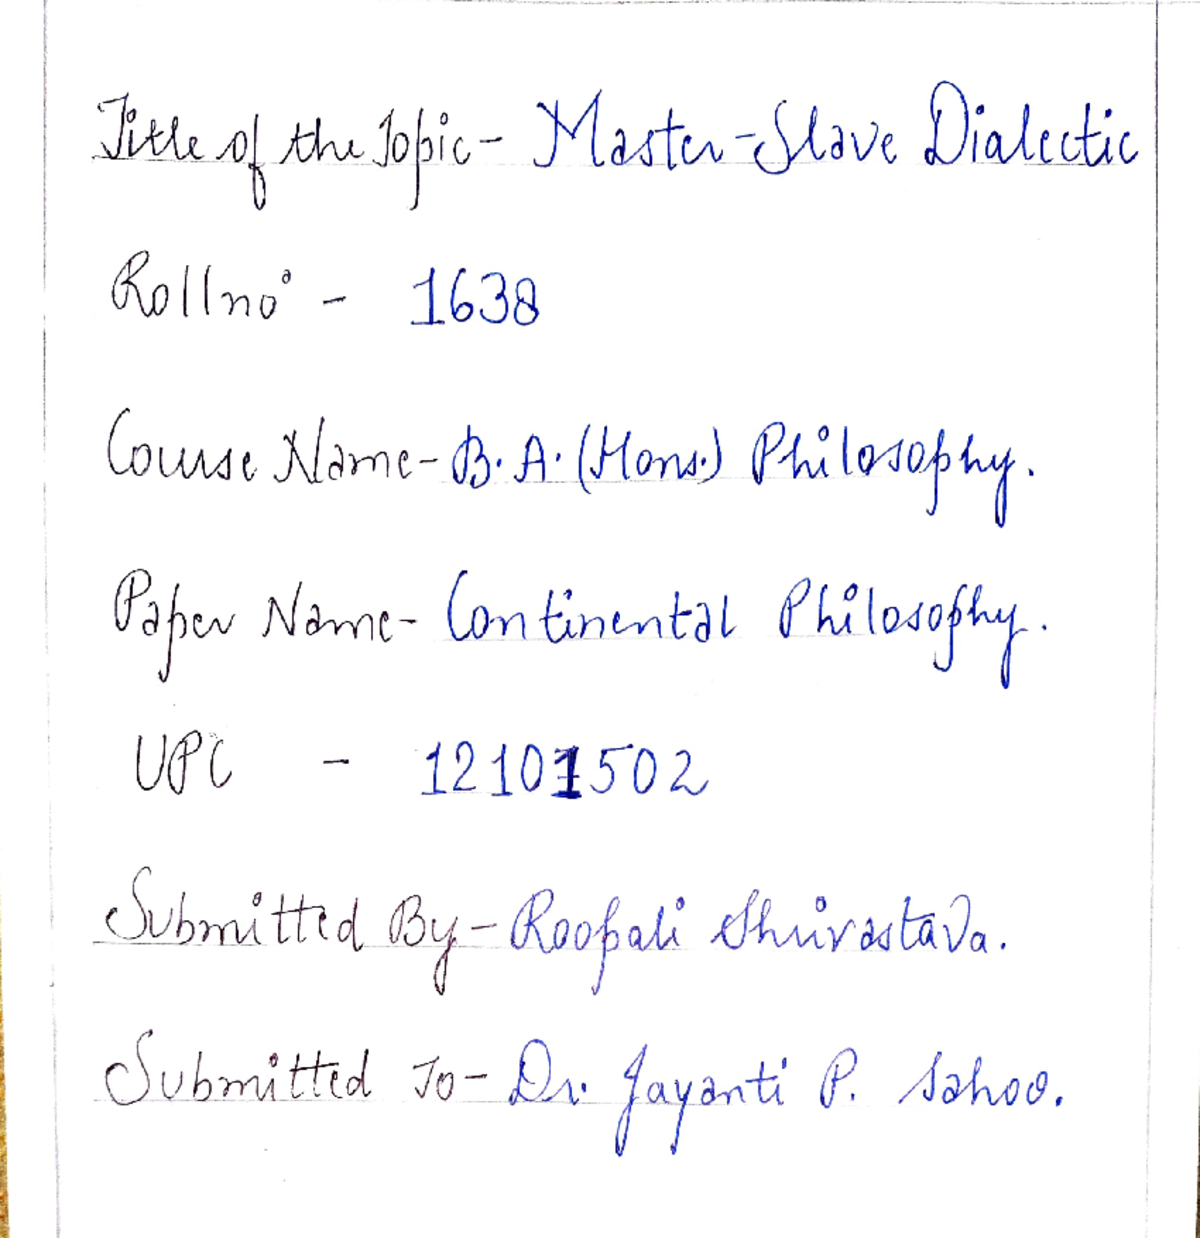 Title of the Topic- Master-Slave Dialectic
Roll no° - 1638
Course Name- B. A. (Hons.) Philosophy.
Paper Name- Continental Philosophy.
UPC - 12101502
Submitted By- Roopali Shrivastava.
Submitted To- Dr. Jayanti P. Sahoo.